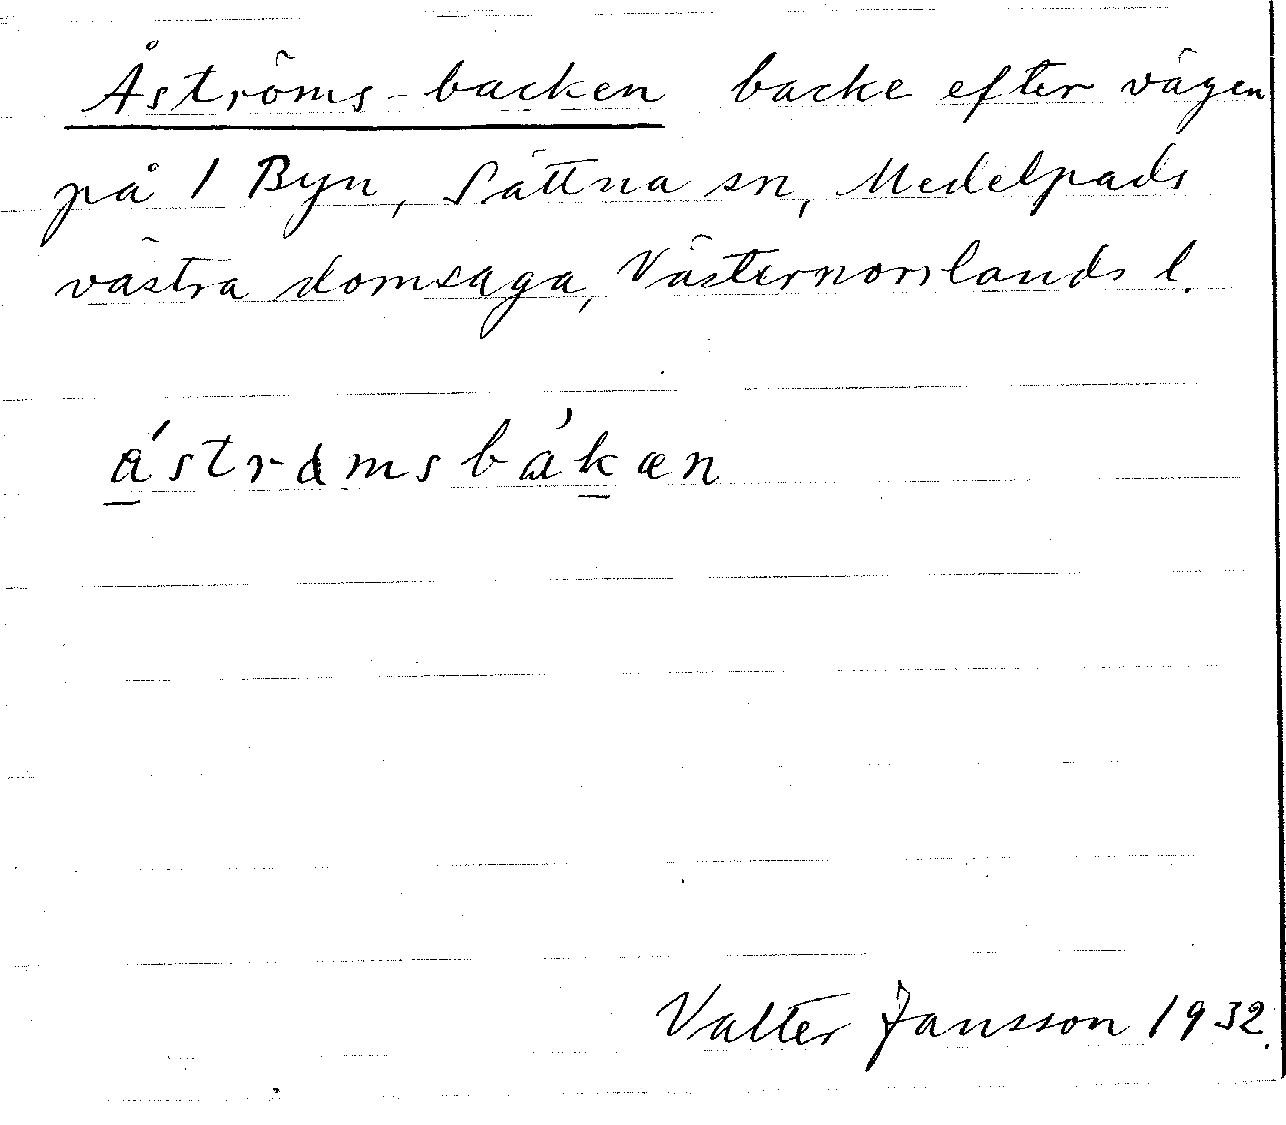 Åströms-backen backe efter vägen
på 1 Byn, Sättna sn, Medelpads
västra domsaga, Västernorrlands l.
ástrɑmsbákæn
Valter Jansson 1932.